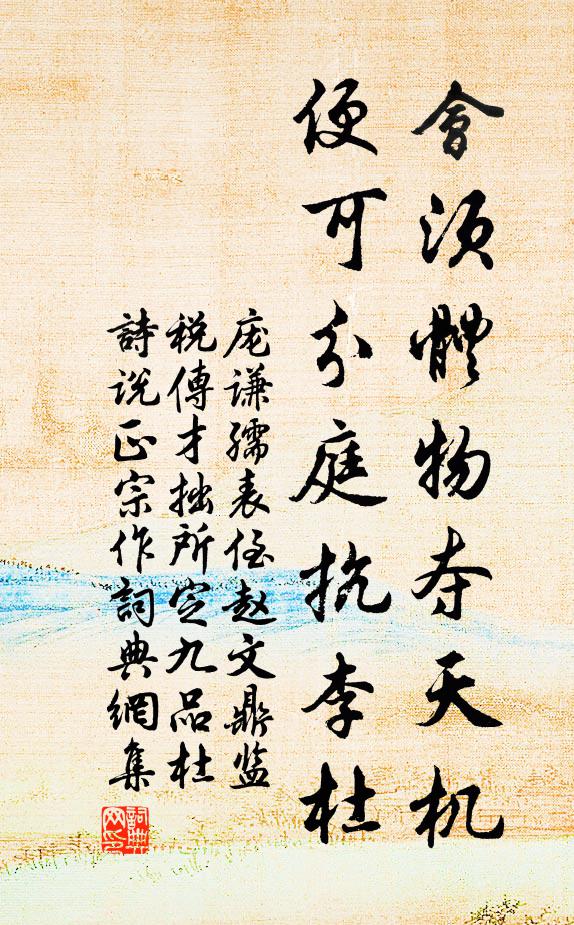 會須體物夺天机
便可分庭抗李杜
庞谦孺表侄赵文鼎监
税傳才拙所定九品杜
詩说正宗作詞典網集